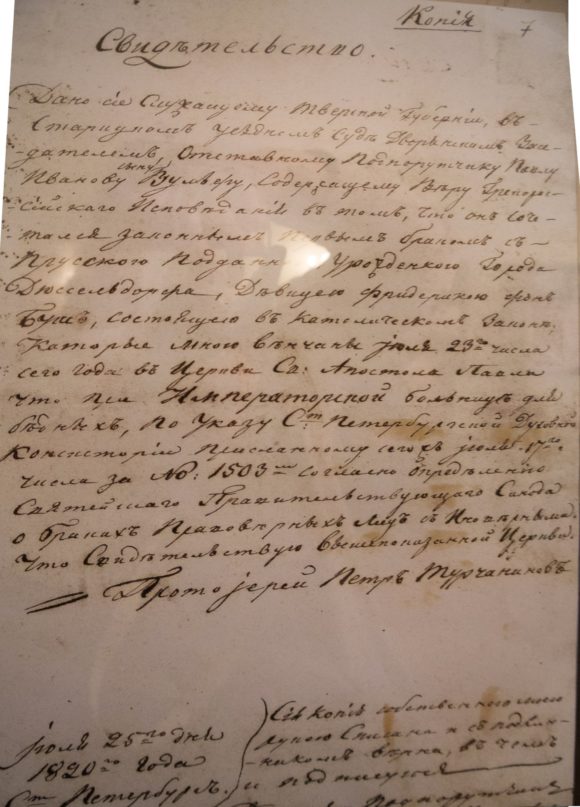 Копія
7
Свидѣтельство.
Дано сіе Служащему Тверской Губерніи, въ
Старицкомъ Уѣздномъ Судѣ Дворянскомъ Засѣ-
дателемъ, Отставному Подпорутчику Павлу
Иванову сыну Вульфу, Содержащему Вѣру Грекорос-
сійскаго Исповѣданія въ томъ, что онъ соче-
тался законнымъ первымъ бракомъ съ
Прусского Подданн Урожденкою Города
Дюссельдорфа, Дѣвицею Фридерикою фонъ
состоящею въ католическомъ Законѣ,
Которые мною вѣнчаны іюля 23го числа
сего года въ Церкви Св: Апостола Павла
что при Императорской больницѣ для
бѣдныхъ, по Указу Ст: Петербургской Духовной
Консисторіи присланному сего жъ іюля 17го
числа за No: 1503мъ согласно опредѣленію
Святейшаго Правительствующаго Синода
о бракахъ Правовѣрныхъ лицъ съ Иновѣрными.
Что Свидѣтельствую вышепоказанной Церкви.
Протоіерей Петръ Турчаниновъ
іюля 25го дня
1820го года
Ст Петербургъ.
Сія копія собственною моею
рукою Списана и съ подлин-
никомъ вѣрна, въ чемъ
и подписуюся
Подпорутчикъ